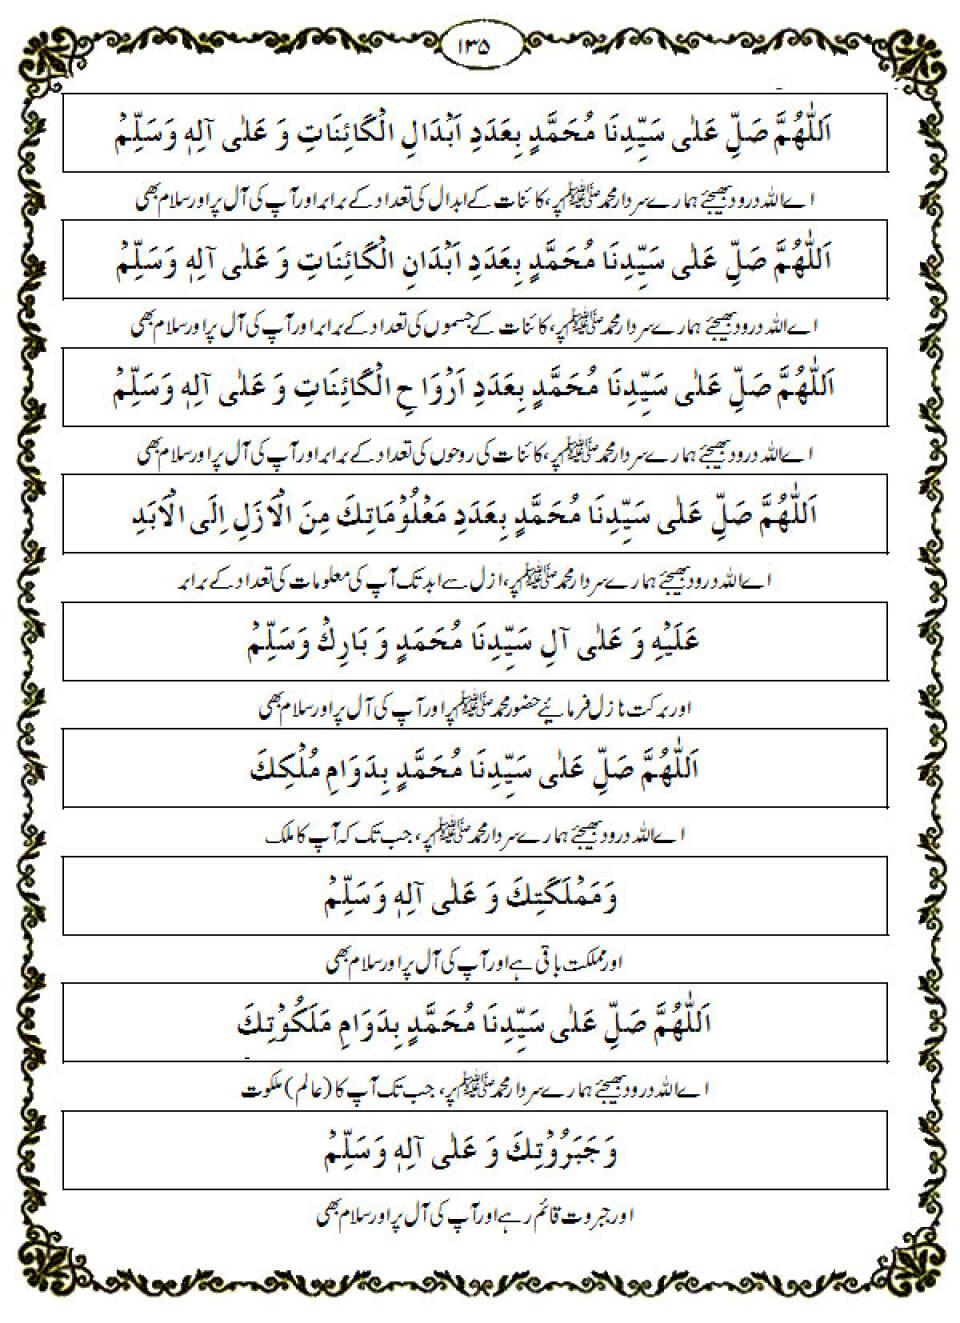 ۱۳۵
اَللّٰهُمَّ صَلِّ عَلٰى سَيِّدِنَا مُحَمَّدٍ بِعَدَدِ اَبْدَالِ الْكَائِنَاتِ وَ عَلٰى آلِهٖ وَسَلِّمْ
اے اللہ درود بھیجئے ہمارے سردار محمد ﷺ پر، کائنات کے ابدال کی تعداد کے برابر اور آپ کی آل پر اور سلام بھی
اَللّٰهُمَّ صَلِّ عَلٰى سَيِّدِنَا مُحَمَّدٍ بِعَدَدِ اَبْدَانِ الْكَائِنَاتِ وَ عَلٰى آلِهٖ وَسَلِّمْ
اے اللہ درود بھیجئے ہمارے سردار محمد ﷺ پر، کائنات کے جسموں کی تعداد کے برابر اور آپ کی آل پر اور سلام بھی
اَللّٰهُمَّ صَلِّ عَلٰى سَيِّدِنَا مُحَمَّدٍ بِعَدَدِ اَرْوَا حِ الْكَائِنَاتِ وَ عَلٰى آلِهٖ وَسَلِّمْ
اے اللہ درود بھیجئے ہمارے سردار محمد ﷺ پر، کائنات کی روحوں کی تعداد کے برابر اور آپ کی آل پر اور سلام بھی
اَللّٰهُمَّ صَلِّ عَلٰى سَيِّدِنَا مُحَمَّدٍ بِعَدَدِ مَعْلُوْمَاتِكَ مِنَ الْاَزَلِ اِلَى الْاَبَدِ
اے اللہ درود بھیجئے ہمارے سردار محمد ﷺ پر، ازل سے ابد تک آپ کی معلومات کی تعداد کے برابر
عَلَيْهِ وَ عَلٰى آلِ سَيِّدِنَا مُحَمَدٍ وَ بَارِكْ وَسَلِّمْ
اور برکت نازل فرمائیے حضور محمد ﷺ پر اور آپ کی آل پر اور سلام بھی
اَللّٰهُمَّ صَلِّ عَلٰى سَيِّدِنَا مُحَمَّدٍ بِدَوَامِ مُلْكِكَ
اے اللہ درود بھیجئے ہمارے سردار محمد ﷺ پر، جب تک کہ آپ کا ملک
وَمَمْلَكَتِكَ وَ عَلٰى آلِهٖ وَسَلِّمْ
اور مملکت باقی ہے اور آپ کی آل پر اور سلام بھی
اَللّٰهُمَّ صَلِّ عَلٰى سَيِّدِنَا مُحَمَّدٍ بِدَوَامِ مَلَكُوْتِكَ
اے اللہ درود بھیجئے ہمارے سردار محمد ﷺ پر، جب تک آپ کا (عالم) ملکوت
وَجَبَرُوْتِكَ وَ عَلٰى آلِهٖ وَسَلِّمْ
اور جبروت قائم رہے اور آپ کی آل پر اور سلام بھی